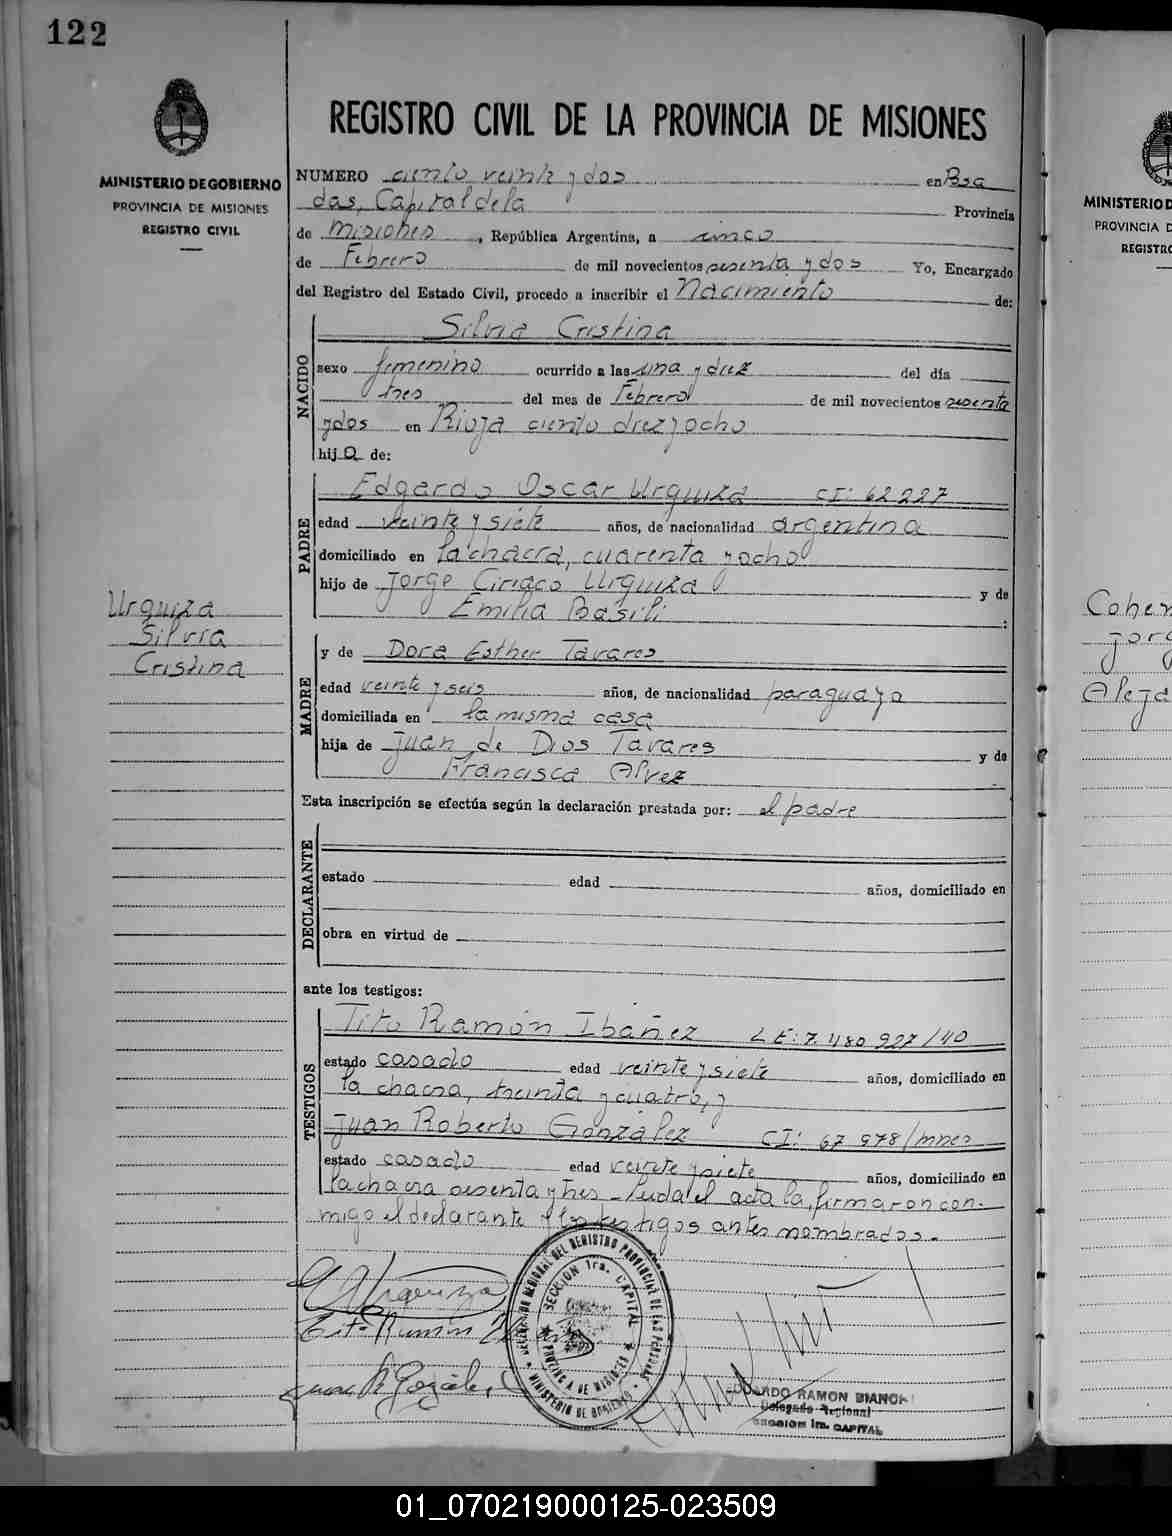 122
MINISTERIO DE GOBIERNO
PROVINCIA DE MISIONES
REGISTRO CIVIL
REGISTRO CIVIL DE LA PROVINCIA DE MISIONES
NUMERO ciento veinte y dos en Posa
das, Capital de la Provincia
de Misiones, República Argentina, a cinco
de Febrero de mil novecientos sesenta y dos Yo, Encargado
del Registro del Estado Civil, procedo a inscribir el Nacimiento de:
NACIDO
Silvia Cristina
sexo femenino ocurrido a las una y diez del día
tres del mes de Febrero de mil novecientos sesenta
y dos en Rioja ciento diez y ocho
hija de:
PADRE
Edgardo Oscar Urquiza CI: 62227
edad veinte y siete años, de nacionalidad argentina
domiciliado en la chacra, cuarenta y ocho
hijo de Jorge Ciriaco Urquiza y de
Emilia Basili :
Urquiza
Silvia
Cristina
MADRE
y de Dora Esther Tavares
edad veinte y seis años, de nacionalidad paraguaya
domiciliada en la misma casa
hija de Juan de Dios Tavares y de
Francisca Alvez
Esta inscripción se efectúa según la declaración prestada por: el padre
DECLARANTE
estado edad años, domiciliado en
obra en virtud de
ante los testigos:
TESTIGOS
Tito Ramón Ibañez L E: 7.480 927/40
estado casado edad veinte y siete años, domiciliado en
la chacra, treinta y cuatro, y
Juan Roberto González CI: 67 978/mnes
estado casado edad veinte y siete años, domiciliado en
la chacra sesenta y tres - Leida el acta la, firmaron con-
migo el declarante y los testigos antes nombrados.-
Urquiza
Tito Ramon
Juan R González
SECCION 1ra. CAPITAL
PROVINCIA DE MISIONES
MINISTERIO DE GOBIERNO
EDUARDO RAMON BIANCHI
Delegado Regional
SECCION 1ra. CAPITAL
MINISTERIO D
PROVINCIA D
REGISTRO
Cohen
Jorg
Aleja
01_070219000125-023509